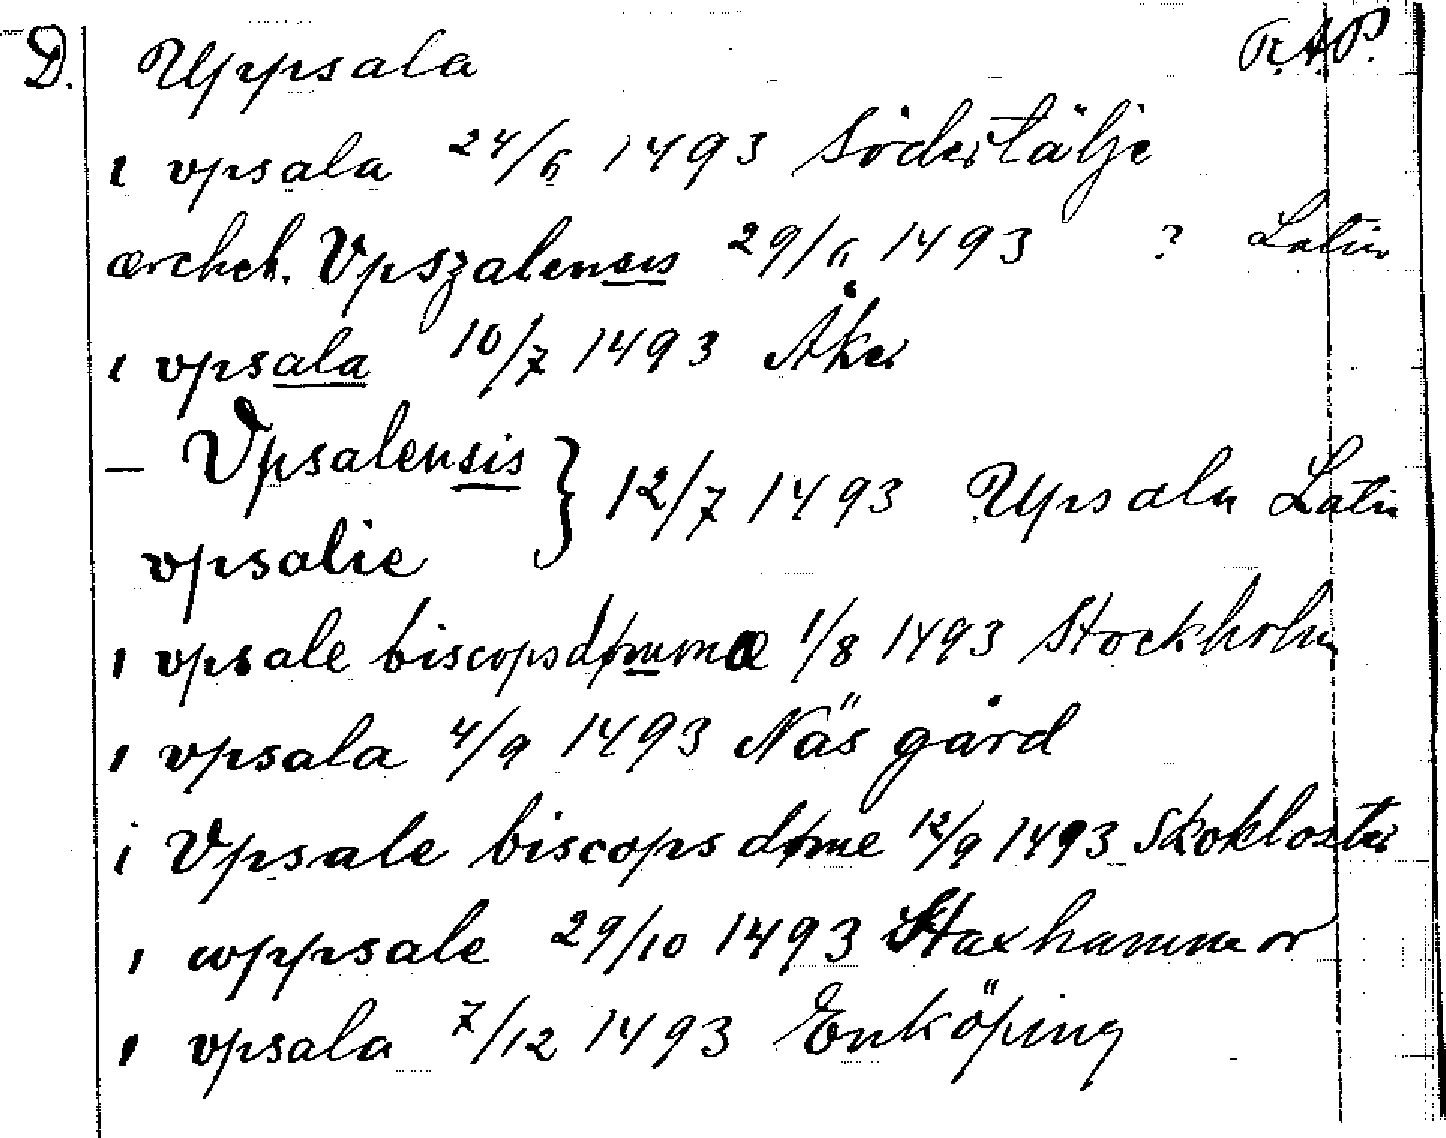 D. Uppsala R.A.P.
i vpsala 24/6 1493 Södertälje
ærcheb. Vpszalensis 29/6 1493 ? Latin
i vpsala 10/7 1493 Åker
– Vpsalensis } 12/7 1493 Upsala Latin
vpsalie
i vpsale biscopsdømmæ 1/8 1493 Stockholm
i vpsala 4/9 1493 Näs gård
i Vpsale biscops døme 12/9 1493 Skokloster
i wppsale 29/10 1493 Staxhammar
i vpsala 7/12 1493 Enköping